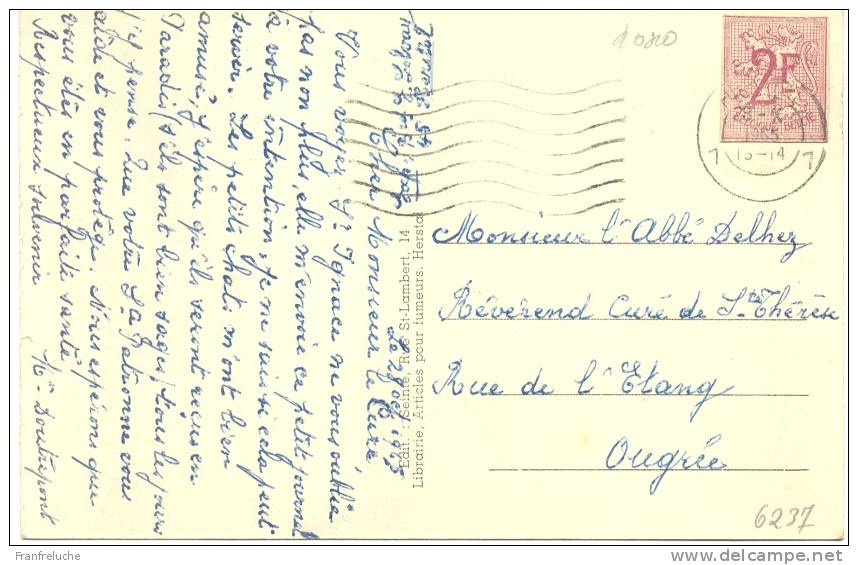 Le 29 oct 1955
Cher Monsieur le Curé
Vous voyez, St Ignace ne vous oublie
pas non plus, elle m'envoie ce petit journal
à votre intention, je ne sais si cela peut
servir. Les petits chats m'ont bien
amusé, j'espère qu'ils seront reçus en
Paradis (s'ils sont bien sages) tous les jours
j'y pense. Que votre Ste Patronne vous
aide et vous protège. Nous espérons que
vous êtes en parfaite santé.
Respectueux souvenir
Mce Doutrepont
Edit.: Seinte, Rue St-Lambert, 14
Librairie, Articles pour fumeurs. Herstal
2F
13-14
1
1
Monsieur l'Abbé Delhez
Révérend Curé de Ste Thérèse
Rue de l'Etang
Ougrée
6237
Franfreluche
www.delcampe.net